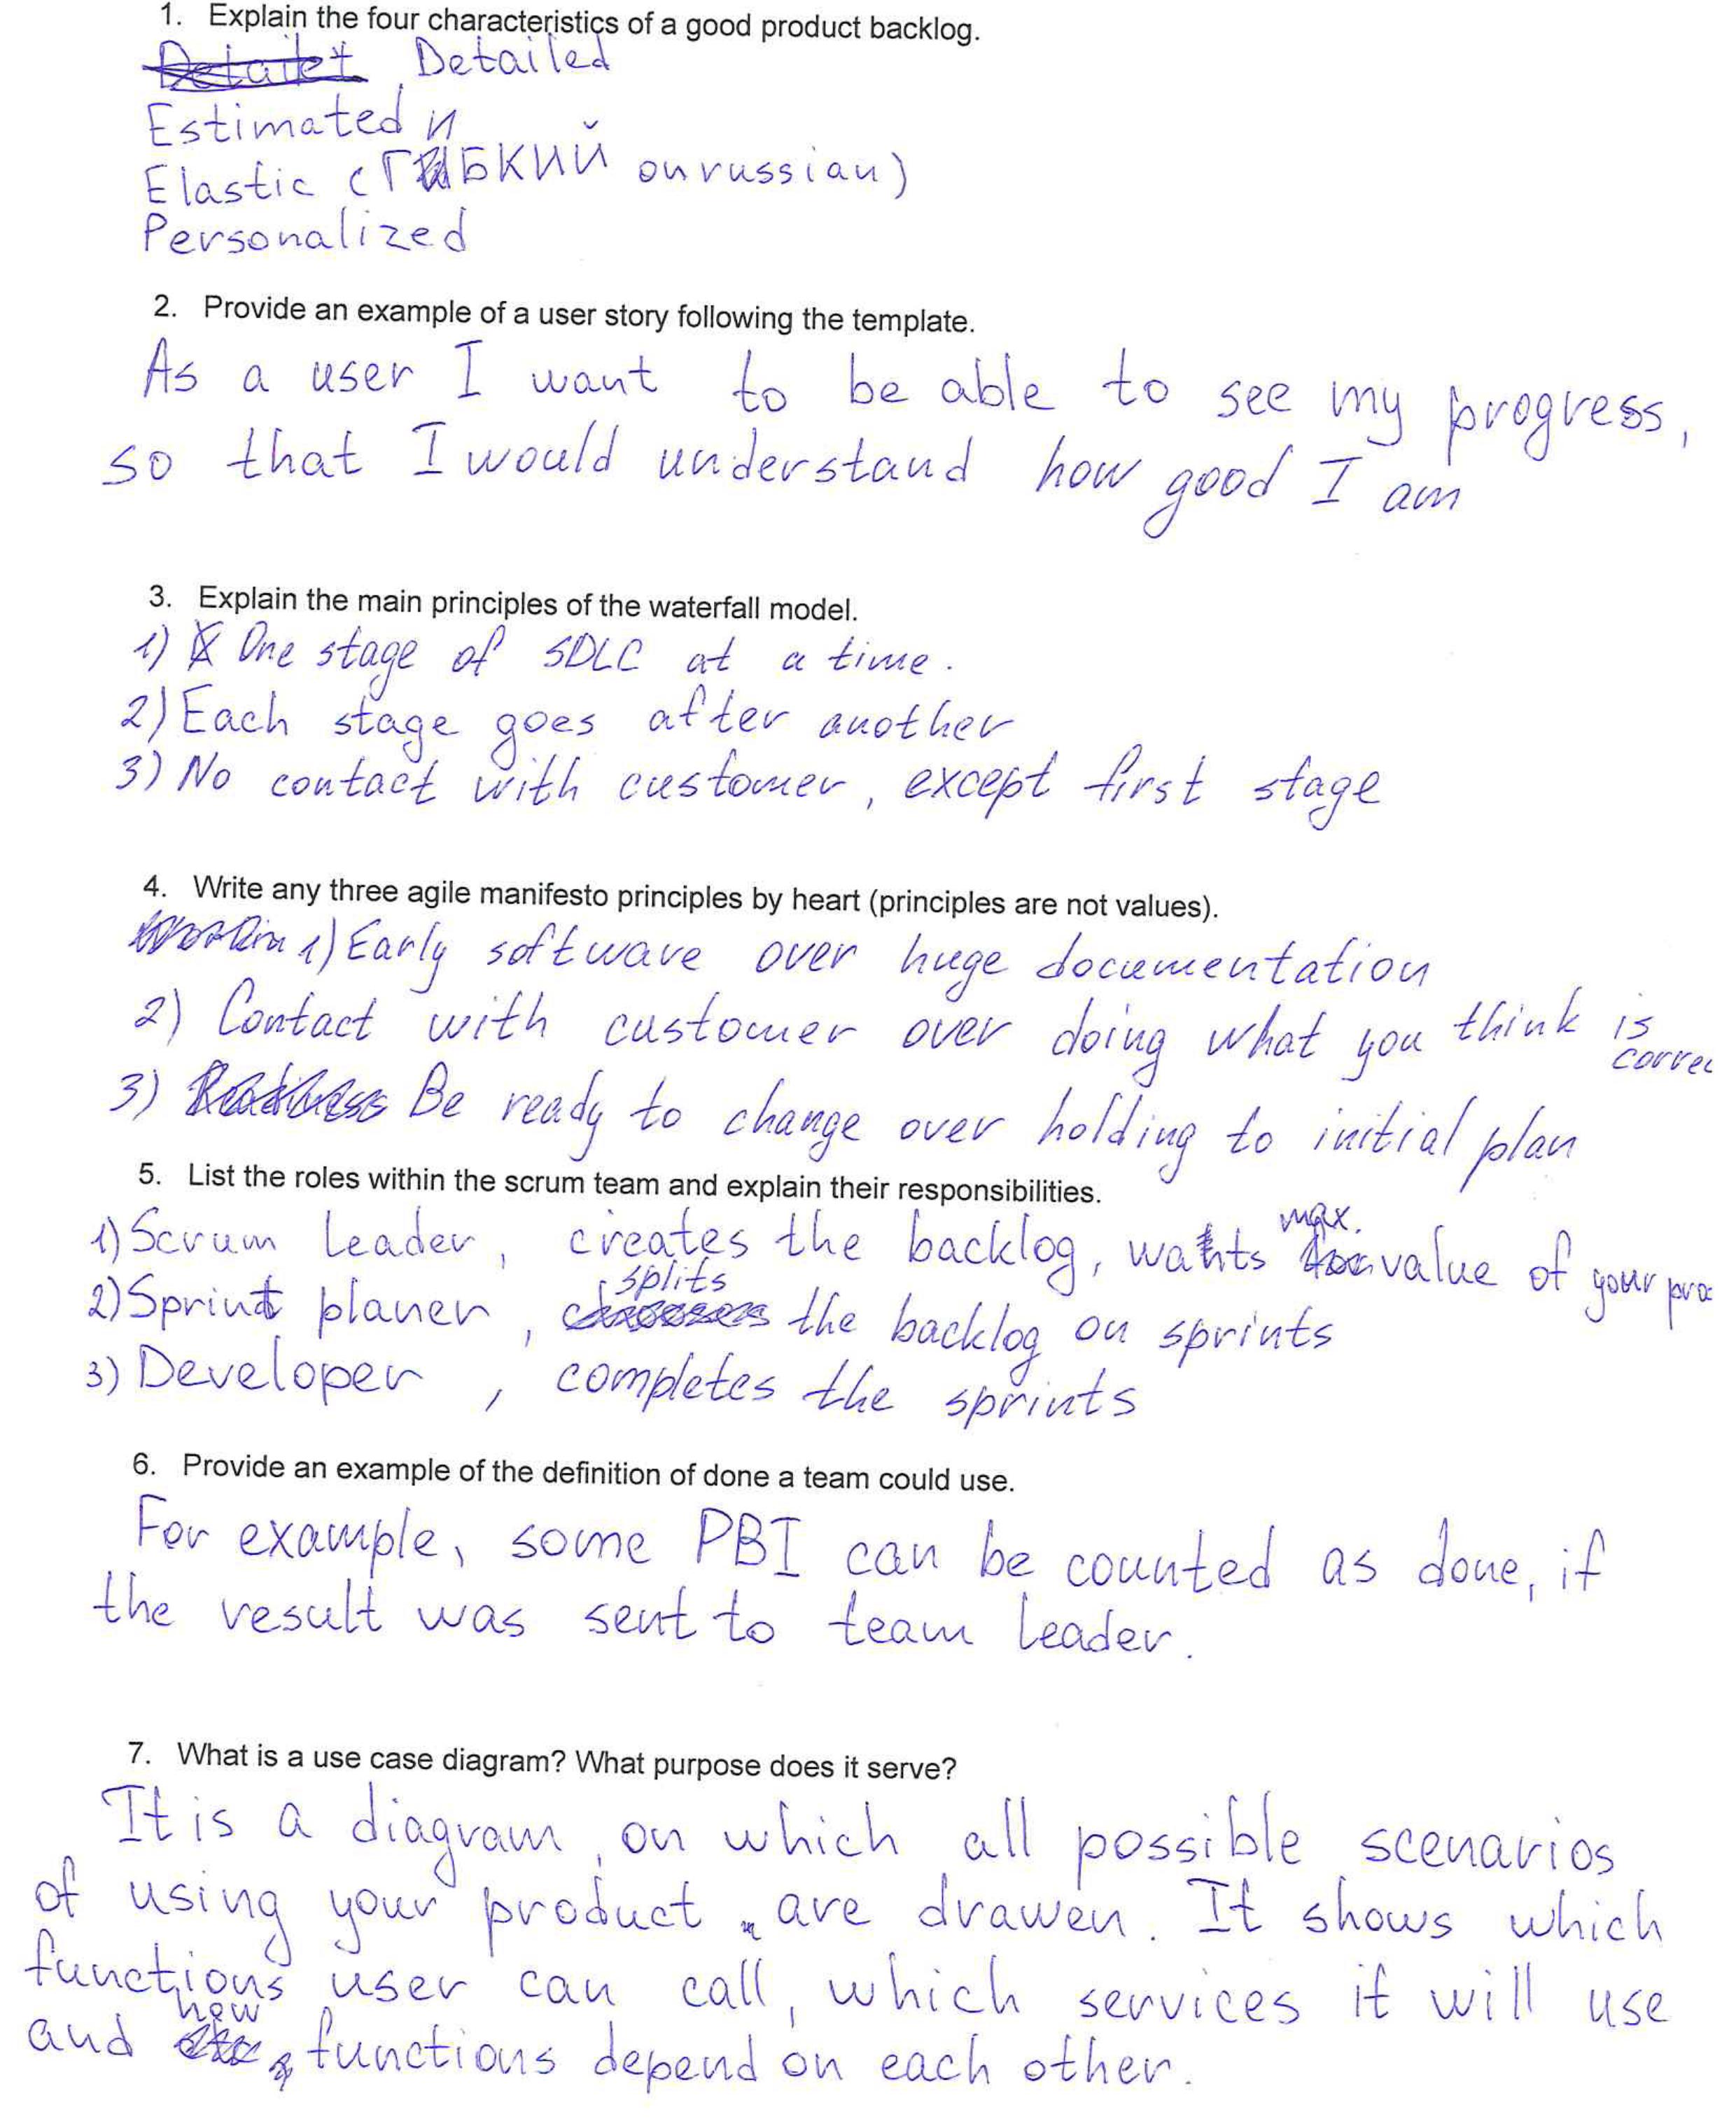 1. Explain the four characteristics of a good product backlog.
Detailed
Estimated
Elastic (ГИБКИЙ on russian)
Personalized
2. Provide an example of a user story following the template.
As a user I want to be able to see my progress,
so that I would understand how good I am
3. Explain the main principles of the waterfall model.
1) One stage of SDLC at a time.
2) Each stage goes after another
3) No contact with customer, except first stage
4. Write any three agile manifesto principles by heart (principles are not values).
1) Early software over huge documentation
2) Contact with customer over doing what you think is
correc
3) Be ready to change over holding to initial plan
5. List the roles within the scrum team and explain their responsibilities.
1) Scrum leader, creates the backlog, wants max. value of your pro
2) Sprint planer, splits the backlog on sprints
3) Developer, completes the sprints
6. Provide an example of the definition of done a team could use.
For example, some PBI can be counted as done, if
the result was sent to team leader.
7. What is a use case diagram? What purpose does it serve?
It is a diagram, on which all possible scenarios
of using your product are drawen. It shows which
functions user can call, which services it will use
and how functions depend on each other.